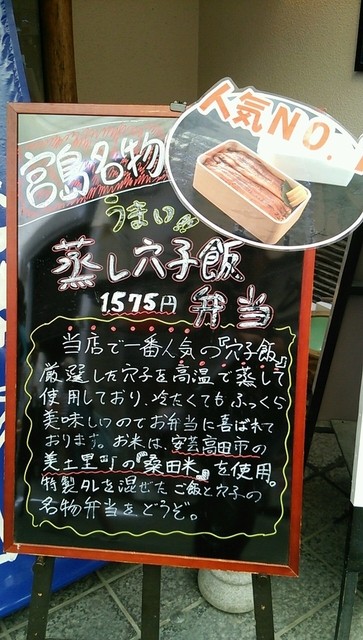 人気NO.1
宮島名物
うまい
蒸し穴子飯
1575円 弁当
当店で一番人気の『穴子飯』
厳選した穴子を高温で蒸して
使用しており、冷たくてもふっくら
美味しいのでお弁当に喜ばれて
おります。お米は、安芸高田市の
美土里町の『桑田米』を使用。
特製タレを混ぜたご飯と穴子の
名物弁当をどうぞ。